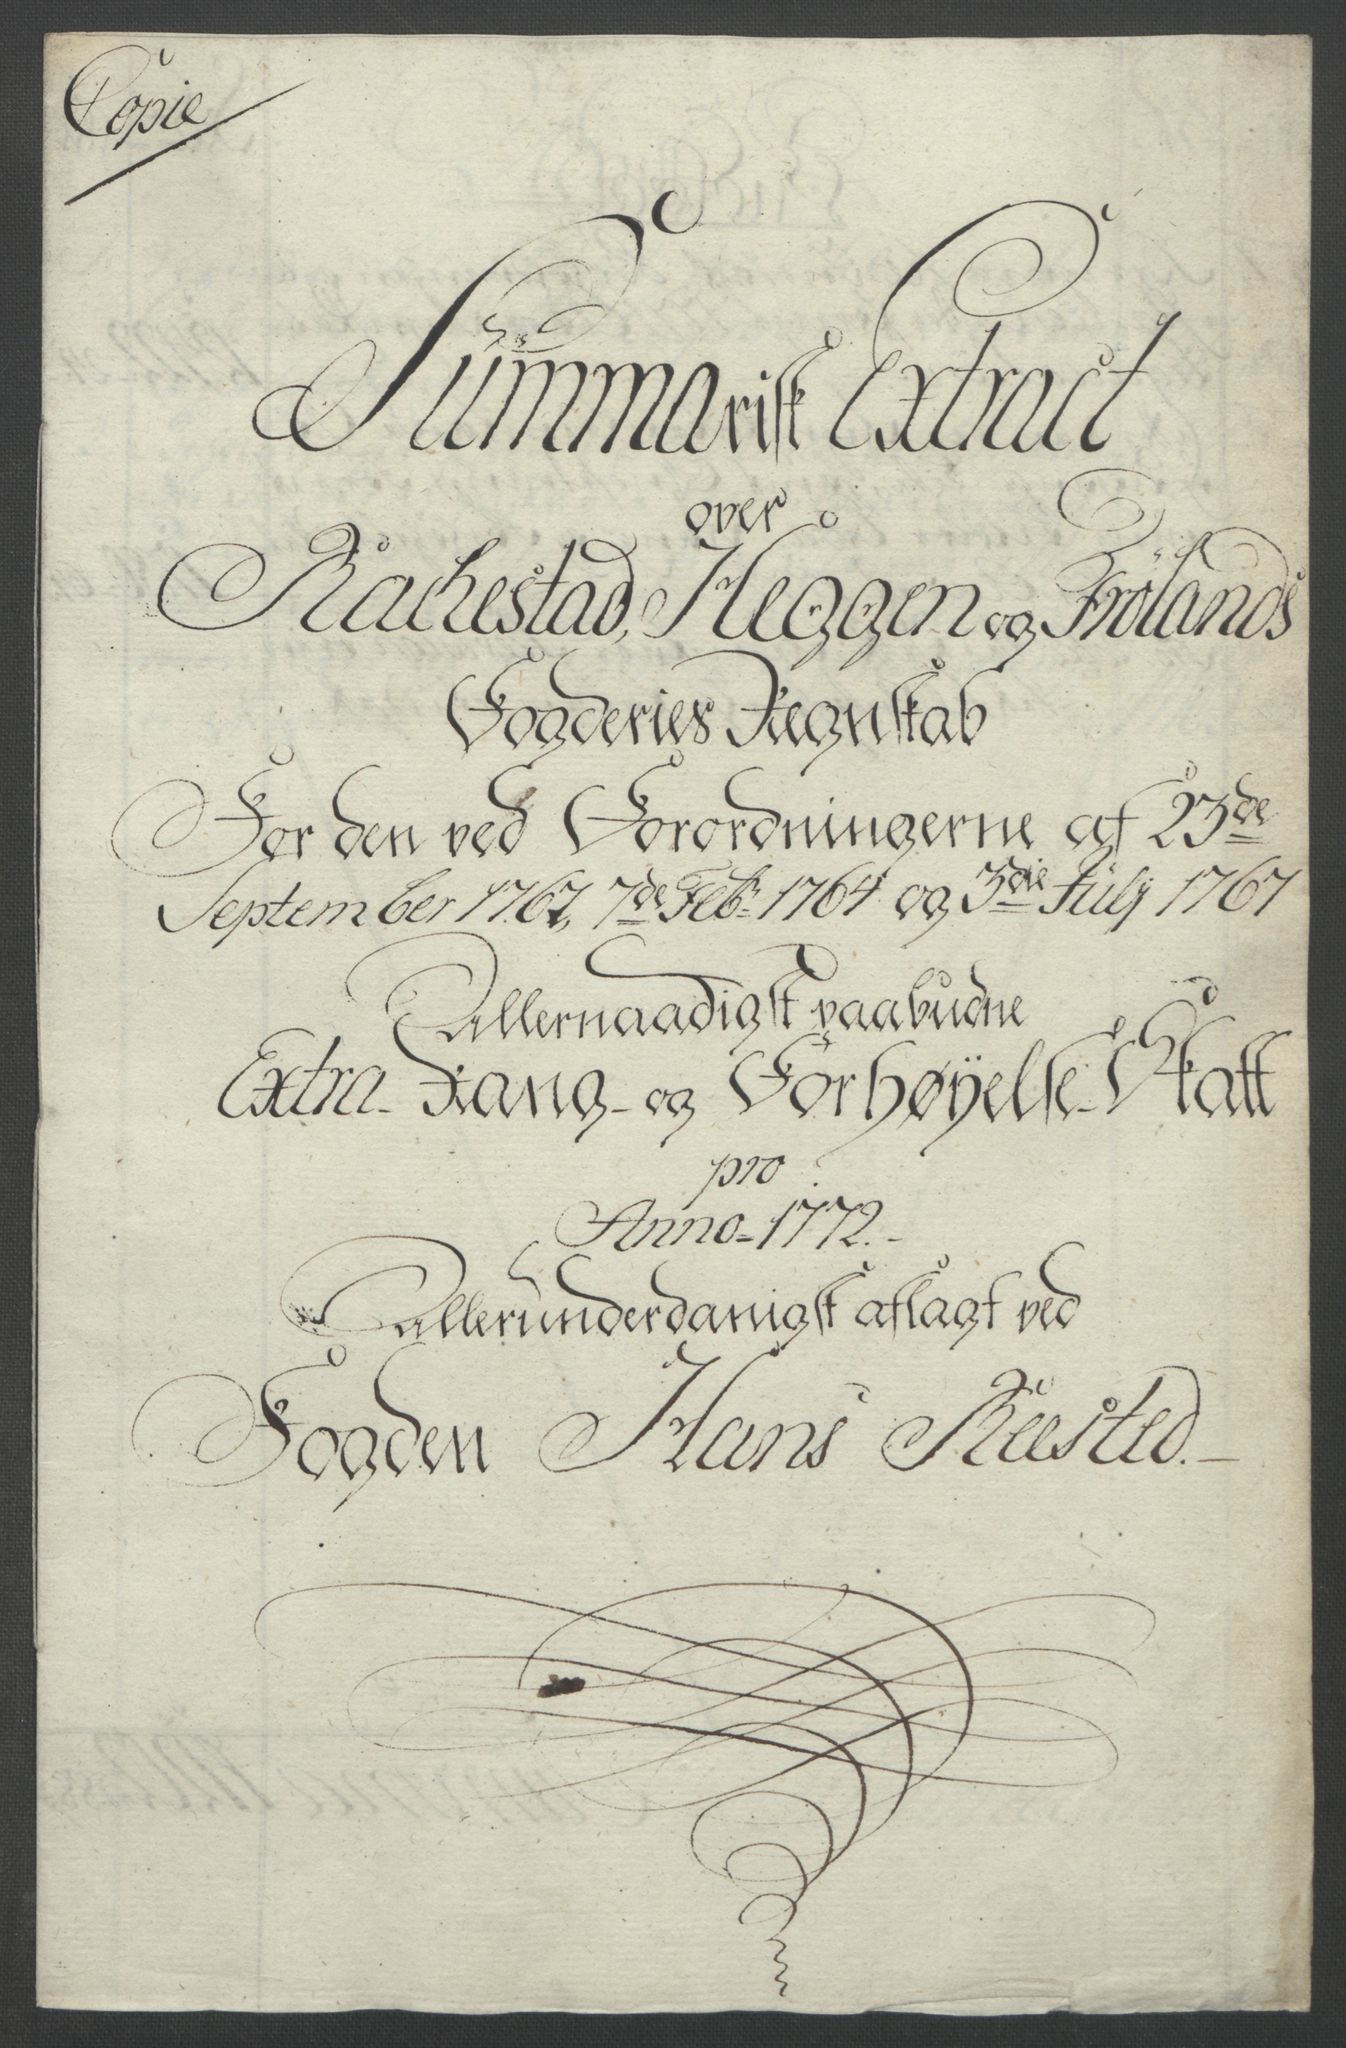 Copie
Summarisk Extract
over
Rachestad, Heggen og Frølands
Fogderies Regnskab
For den ved Forordningerne af 23de
September 1762, 7de Febr: 1764 og 3die Julij 1767
Allernaadigst paabudne
Extra- Rang- og Forhøyelse-Skatt
pro
Anno-1772.-
Allerunderdanigst aflagt ved
Fogden Hans Reested.-